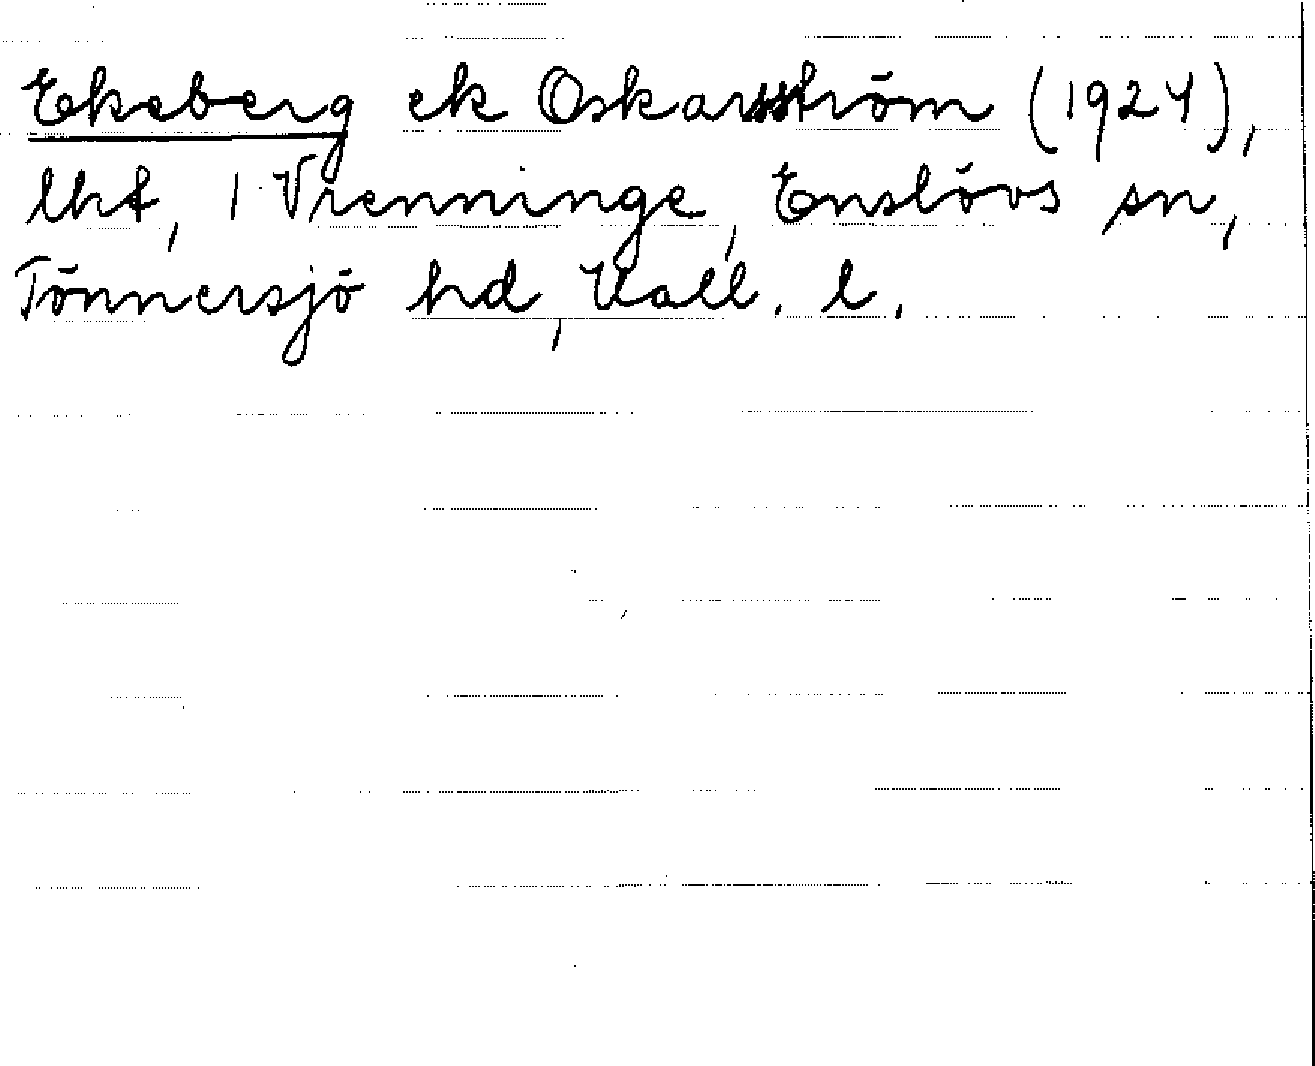 Ekeberg ek Oskarsström (1924),
lht, 1 Vrenninge, Enslövs sn,
Tönnersjö hd, Hall. l.